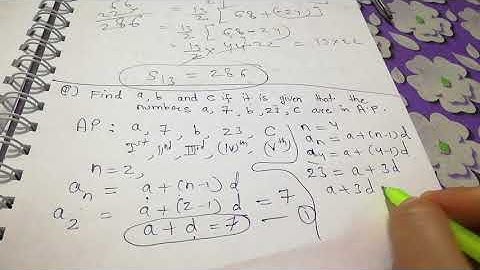 66
286
= 13/2 [68+(-24)]
= 13/2 [68-24]
= 13/2 × 44 22 = 13×22
S13 = 286
Q) Find a, b and c if it is given that the
numbers a, 7, b, 23, c are in A.P.
AP: a, 7, b, 23, c
Ist, IInd, IIIrd, (IV)th, (Vth)
n = 2,
an = a + (n-1) d
a2 = a + (2-1) d = 7
a + d = 7 — ①
n = 4
an = a + (n-1) d
a4 = a + (4-1) d
23 = a + 3d
a + 3d